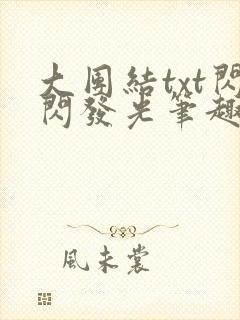 大团結txt閃
閃發光筆趣
風未裳